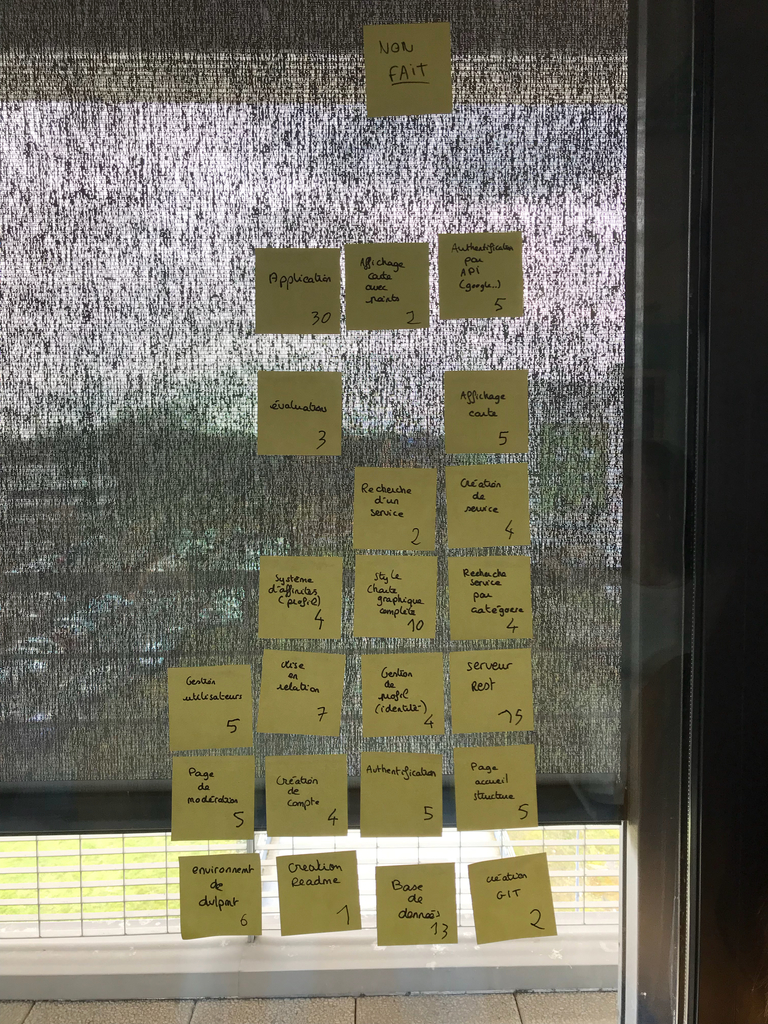 NON
FAIT
Application
30
Affichage
carte
avec
points
2
Authentification
par
API
(google...)
5
évaluation
3
Affichage
carte
5
Recherche
d'un
service
2
Création
de
service
4
Système
d'affinités
(profil)
4
Style
Charte
graphique
complète
10
Recherche
service
par
catégorie
4
Gestion
utilisateurs
5
Mise
en
relation
7
Gestion
de
profil
(identité)
4
serveur
Rest
15
Page
de
modération
5
Création
de
compte
4
Authentification
5
Page
accueil
structure
5
environnement
de
6
Creation
Readme
1
Base
de
données
13
création
GIT
2